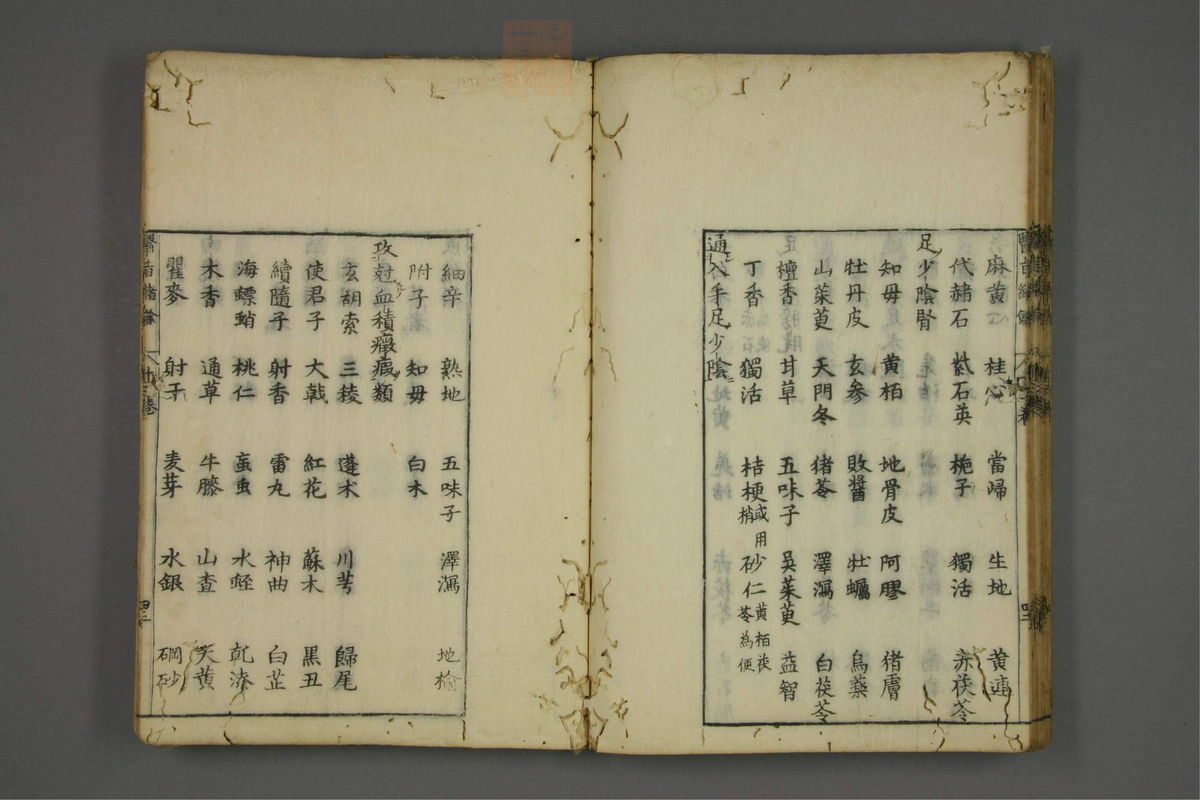 麻黄 桂心 當歸 生地 黄連
代赭石 紫石英 梔子 獨活 赤茯苓
足少陰腎
知毋 黄栢 地骨皮 阿膠 猪膚
牡丹皮 玄參 敗醬 牡蠣 烏藥
山茱萸 天門冬 猪苓 澤瀉 白茯苓
檀香 甘草 五味子 吳茱萸 益智
丁香 獨活 桔梗 或用梢 砂仁 黄栢茯苓為便
通入手足少陰
細辛 熟地 五味子 澤瀉 地榆
附子 知毋 白朮
攻尅血積癥瘕類
玄胡索 三稜 蓬朮 川芎 歸尾
使君子 大戟 紅花 蘇木 黒丑
續隨子 射香 雷丸 神曲 白芷
海螵蛸 桃仁 䖟虫 水蛭 乾漆
木香 通草 牛膝 山査
瞿麥 射干 麦芽 水銀 硇砂
醫旨緒餘